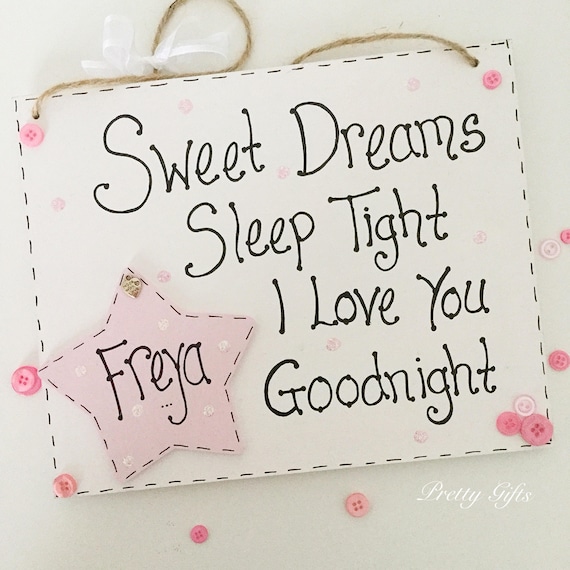 Sweet Dreams
Sleep Tight
I Love You
Goodnight
Freya
Pretty Gifts